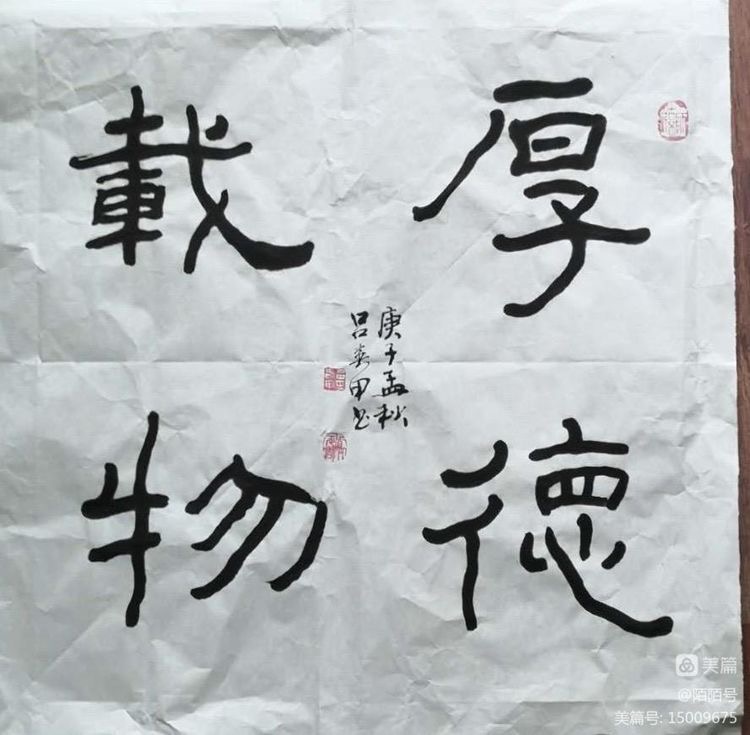 厚德
載物
庚子孟秋
吕春田书
美篇
@陌陌号
美篇号: 15009675